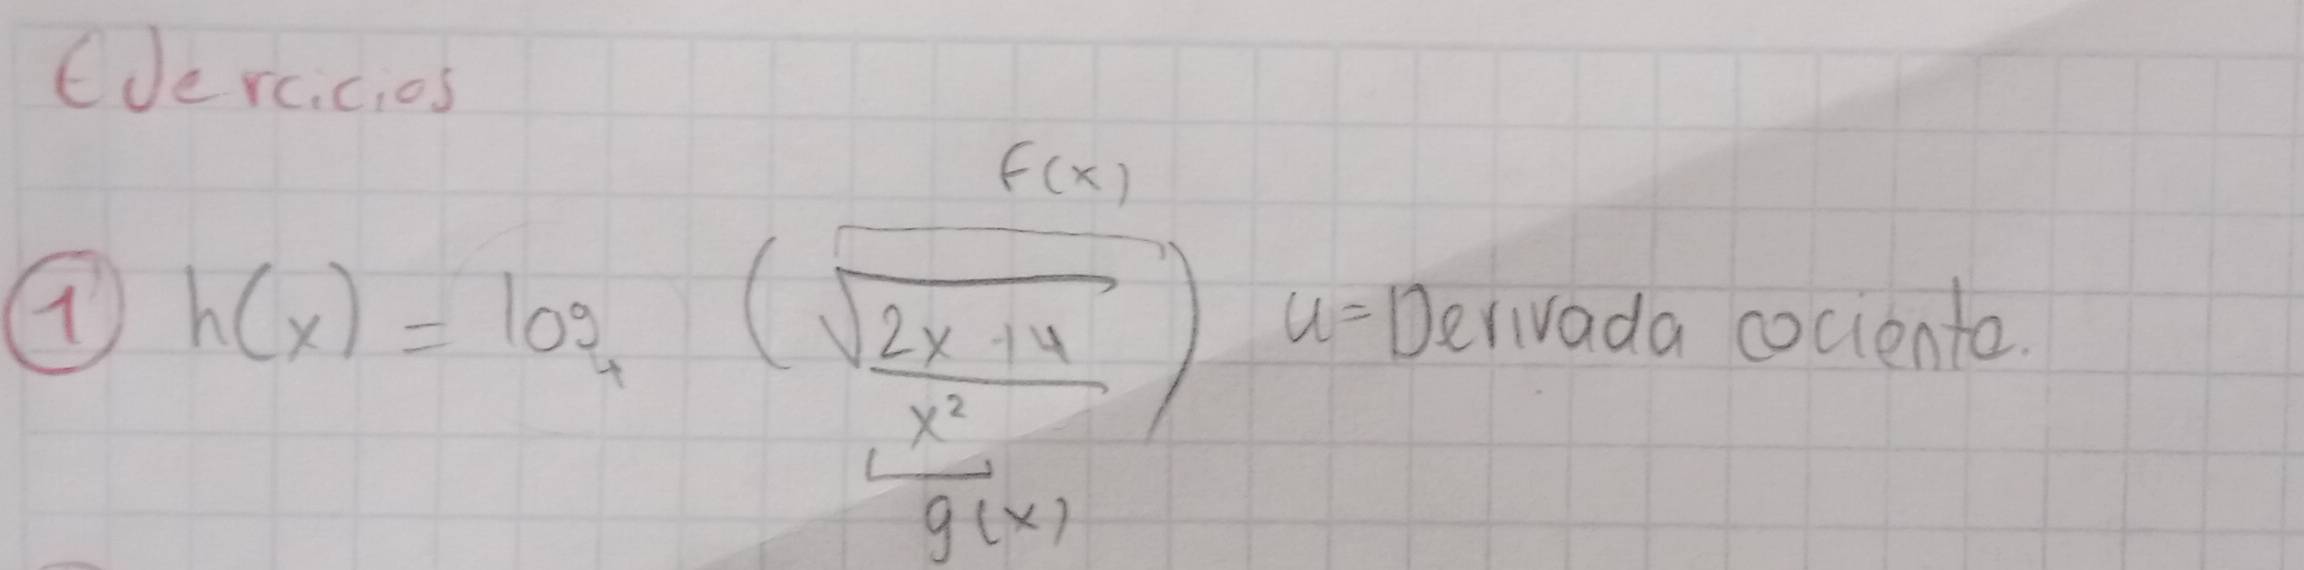 Ejercicios
f(x)
① h(x) = log₄ (√2x+4 / x²) u = Derivada cociente.
g(x)